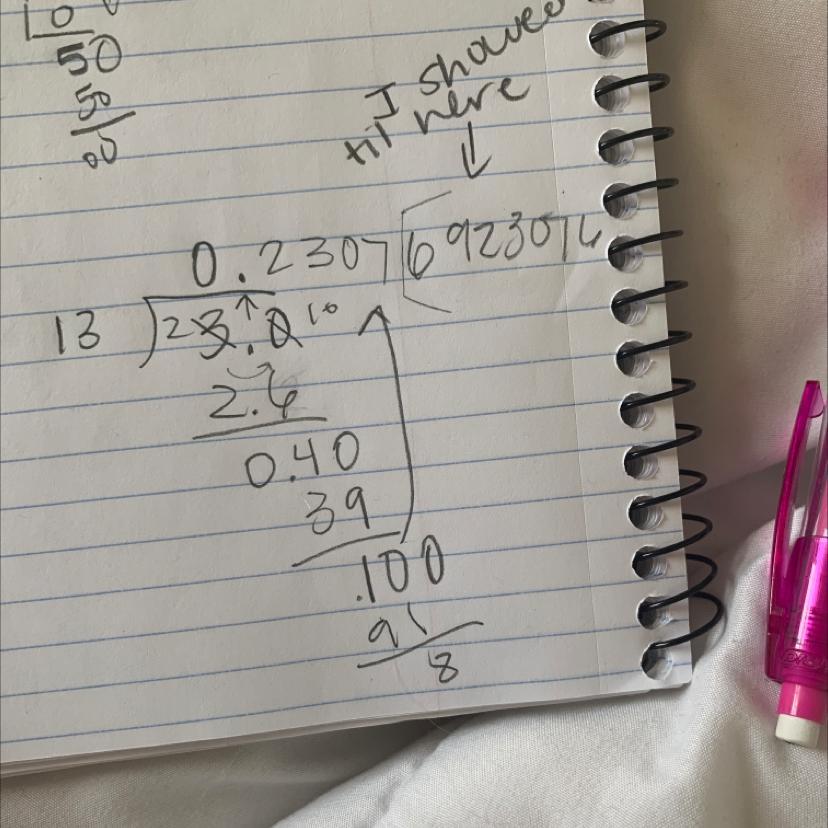 10
50
50
00
I showed
til here
0.2307 6923076
13 23.0 10
2.6
0.40
39
.100
91
8